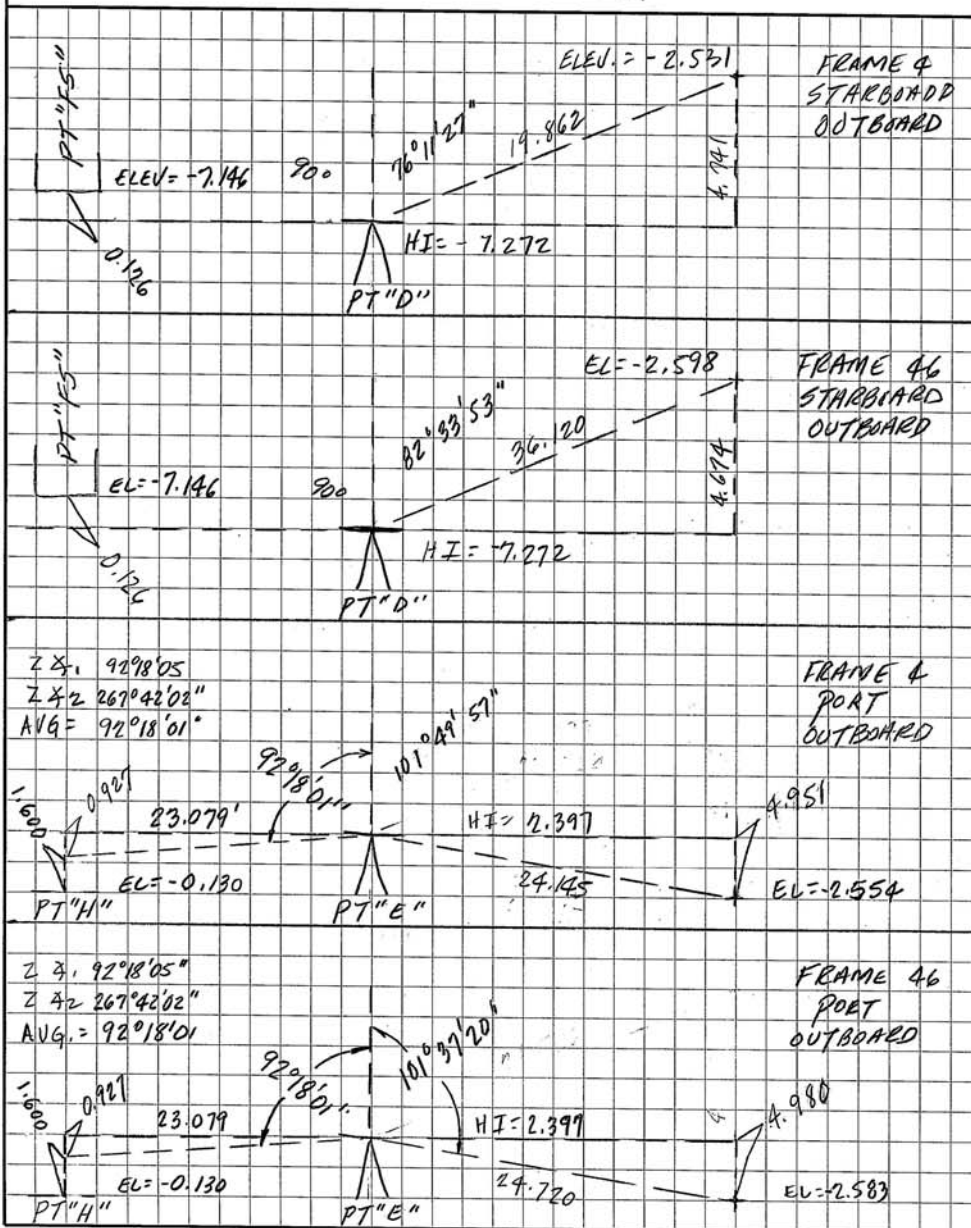 ELEV. = -2.531
FRAME 4
STARBOADD
OUTBOARD
PT "FS"
76°11'27"
19.862
4.741
ELEV = -7.146
90°
HI = -7.272
0.126
PT "D"
EL = -2.598
FRAME 46
STARBOARD
OUTBOARD
PT "FS"
82°33'53"
36.120
4.674
EL = -7.146
90°
HI = -7.272
0.126
PT "D"
Z ∡1 92°18'05
Z ∡2 267°42'02"
AVG = 92°18'01"
FRAME 4
PORT
OUTBOARD
92°18'01"
101°49'57"
1.600
0.927
23.079'
HI = 2.397
4.951
EL = -0.130
24.145
EL = -2.554
PT "H"
PT "E"
Z ∡1 92°18'05"
Z ∡2 267°42'02"
AVG. = 92°18'01
FRAME 46
PORT
OUTBOARD
92°18'01"
101°37'20"
1.600
0.927
23.079
HI = 2.397
4.980
EL = -0.130
24.720
EL = -2.583
PT "H"
PT "E"